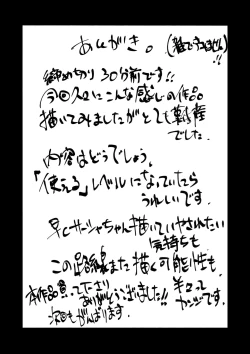 あとがき。
(雑ですみません)!!
締めきり30分前です!!
今回久々にこんな感じの作品
描いてみましたがとても
でした。
内容はどうでしょう。
「使える」レベルになっていたら
うれしいです。
早くサーシャちゃん描いていやされたい
気持ちも
この路線また描く可能性も
本作品買って下さり
ありがとうございました!!
次回もがんばります。